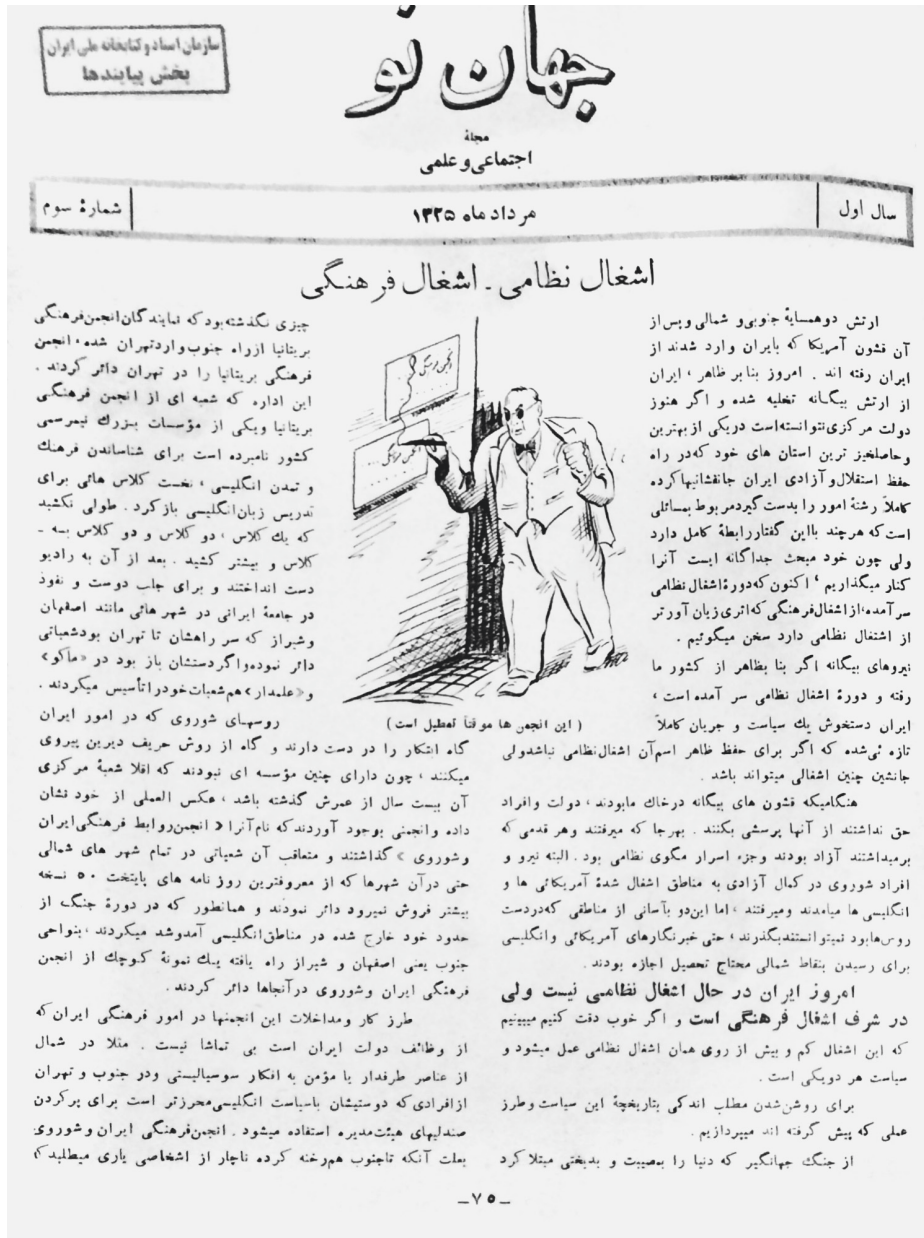 سازمان اسناد و کتابخانه ملی ایران
بخش پیایندها
جهان نو
مجلهٔ
اجتماعی و علمی
سال اول
مرداد ماه ۱۳۲۵
شمارهٔ سوم
اشغال نظامی ـ اشغال فرهنگی
ارتش دوهمسایهٔ جنوبی و شمالی و پس از
آن قشون آمریکا که بایران وارد شدند از
ایران رفته اند . امروز بنابر ظاهر ، ایران
از ارتش بیگانه تخلیه شده و اگر هنوز
دولت مرکزی نتوانسته است در یکی از بهترین
و حاصلخیز ترین استان های خود که در راه
حفظ استقلال و آزادی ایران جانفشانیها کرده
کاملاً رشتهٔ امور را بدست گیرد مربوط بمسائلی
است که هر چند با این گفتار رابطهٔ کامل دارد
ولی چون خود مبحث جداگانه ایست آنرا
کنار میگذاریم ، اکنون که دورهٔ اشغال نظامی
سر آمده، از اشغال فرهنگی که اثری زیان آورتر
از اشغال نظامی دارد سخن میگوئیم .
نیروهای بیگانه اگر بنا بظاهر از کشور ما
رفته و دورهٔ اشغال نظامی سر آمده است ،
ایران دستخوش یك سیاست و جریان کاملاً
تازه ئی شده که اگر برای حفظ ظاهر اسم آن اشغال نظامی نباشد ولی
جانشین چنین اشغالی میتواند باشد .
هنگامیکه قشون های بیگانه در خاك ما بودند ، دولت و افراد
حق نداشتند از آنها پرسشی بکنند . بهر جا که میرفتند و هر قدمی که
برمیداشتند آزاد بودند و جزء اسرار مگوی نظامی بود . البته نیرو و
افراد شوروی در کمال آزادی به مناطق اشغال شدهٔ آمریکائی ها و
انگلیسی ها میامدند و میرفتند ، اما این دو بآسانی از مناطقی که در دست
روس ها بود نمیتوانستند بگذرند ، حتی خبرنگارهای آمریکائی و انگلیسی
برای رسیدن بنقاط شمالی محتاج تحصیل اجازه بودند .
امروز ایران در حال اشغال نظامی نیست ولی
در شرف اشغال فرهنگی است و اگر خوب دقت کنیم میبینیم
که این اشغال کم و بیش از روی همان اشغال نظامی عمل میشود و
سیاست هر دو یکی است .
برای روشن شدن مطلب اندکی بتاریخچهٔ این سیاست و طرز
عملی که پیش گرفته اند میپردازیم .
از جنگ جهانگیر که دنیا را بمصیبت و بدبختی مبتلا کرد
انجمن فرهنگی
انجمن فرهنگی
( این انجمن ها موقتاً تعطیل است )
چیزی نگذشته بود که نمایندگان انجمن فرهنگی
بریتانیا از راه جنوب وارد تهران شده ، انجمن
فرهنگی بریتانیا را در تهران دائر کردند .
این اداره که شعبه ای از انجمن فرهنگی
بریتانیا و یکی از مؤسسات بزرك نیمرسمی
کشور نامبرده است برای شناساندن فرهنك
و تمدن انگلیسی ، نخست کلاس هائی برای
تدریس زبان انگلیسی باز کرد . طولی نکشید
که یك کلاس ، دو کلاس و دو کلاس بسه ـ
کلاس و بیشتر کشید . بعد از آن به رادیو
دست انداختند و برای جلب دوست و نفوذ
در جامعهٔ ایرانی در شهر هائی مانند اصفهان
و شیراز که سر راهشان تا تهران بود شعباتی
دائر نموده و اگر دستشان باز بود در «ماکو»
و «علمدار» هم شعبات خود را تأسیس میکردند .
روسهای شوروی که در امور ایران
گاه ابتکار را در دست دارند و گاه از روش حریف دیرین پیروی
میکنند ، چون دارای چنین مؤسسه ای نبودند که اقلا شعبهٔ مرکزی
آن بیست سال از عمرش گذشته باشد ، عکس العملی از خود نشان
داده و انجمنی بوجود آوردند که نام آنرا « انجمن روابط فرهنگی ایران
و شوروی » گذاشتند و متعاقب آن شعباتی در تمام شهر های شمالی
حتی در آن شهرها که از معروفترین روز نامه های پایتخت ۵۰ نسخه
بیشتر فروش نمیرود دائر نمودند و همانطور که در دورهٔ جنگ از
حدود خود خارج شده در مناطق انگلیسی آمدوشد میکردند ، بنواحی
جنوب یعنی اصفهان و شیراز راه یافته یك نمونهٔ کوچك از انجمن
فرهنگی ایران و شوروی در آنجاها دائر کردند .
طرز کار و مداخلات این انجمنها در امور فرهنگی ایران که
از وظائف دولت ایران است بی تماشا نیست . مثلا در شمال
از عناصر طرفدار یا مؤمن به افکار سوسیالیستی و در جنوب و تهران
از افرادی که دوستیشان با سیاست انگلیسی محرزتر است برای پر کردن
صندلیهای هیئت مدیره استفاده میشود . انجمن فرهنگی ایران و شوروی
بعلت آنکه تا جنوب هم رخنه کرده ناچار از اشخاصی یاری میطلبد که
ـ۷۵ـ